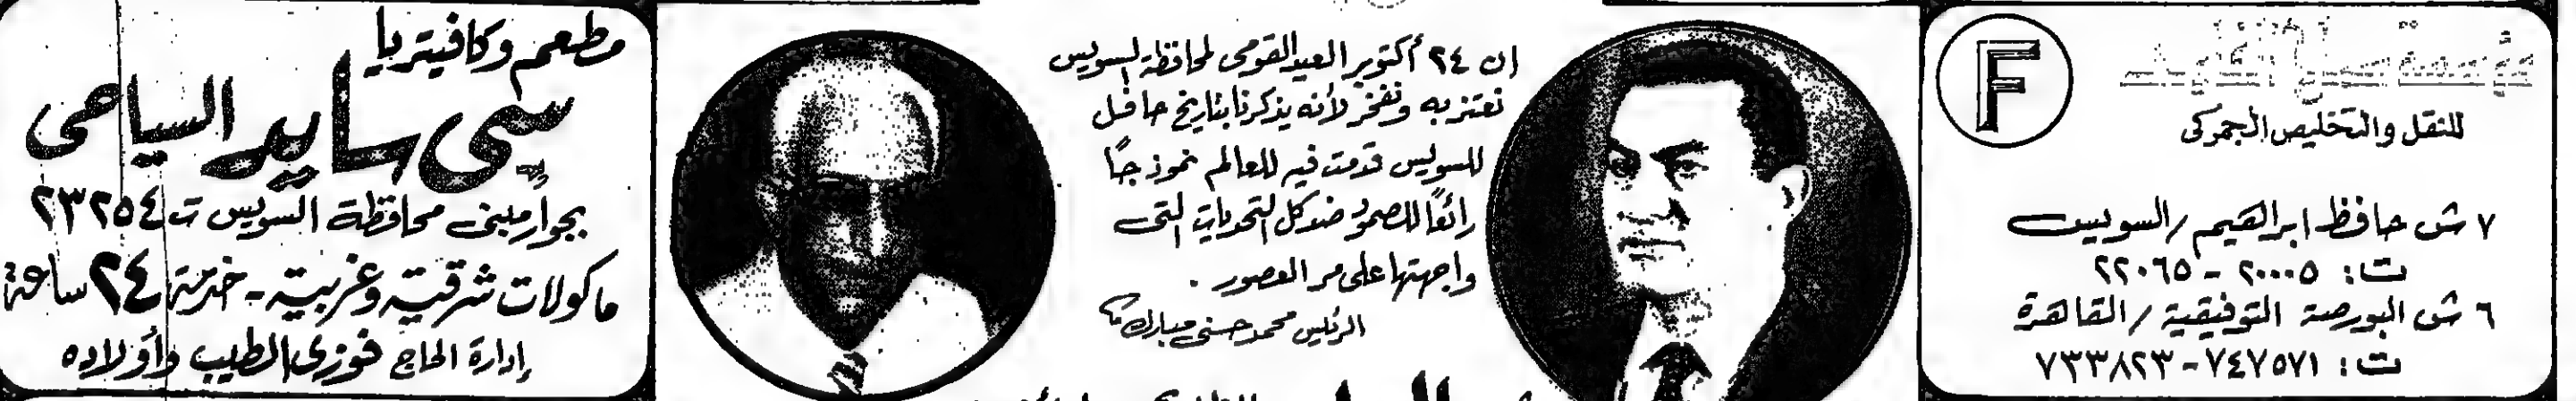 F
مؤسسة
للنقل والتخليص الجمركى
٧ ش حافظ ابراهيم / السويس
ت : ٢٠٠٠٥ - ٢٢٠٦٥
٦ ش البورصة التوفيقية / القاهرة
ت : ٧٤٧٥٧١ - ٧٣٣٨٢٣
ان ٢٤ أكتوبر العيد القومى لمحافظة السويس
نعتز به ونفخر لأنه يذكرنا بتاريخ حافل
للسويس قدمت فيه للعالم نموذجاً
رائعاً للصمود ضد كل التحديات التى
واجهتها على مر العصور .
الرئيس محمد حسنى مبارك
مطعم وكافيتريا
سى سايد السياحى
بجوار مبنى محافظة السويس ت ٢٣٢٥٤
ماكولات شرقية وغربية - خدمة ٢٤ ساعة
إدارة الحاج فوزى الطيب وأولاده